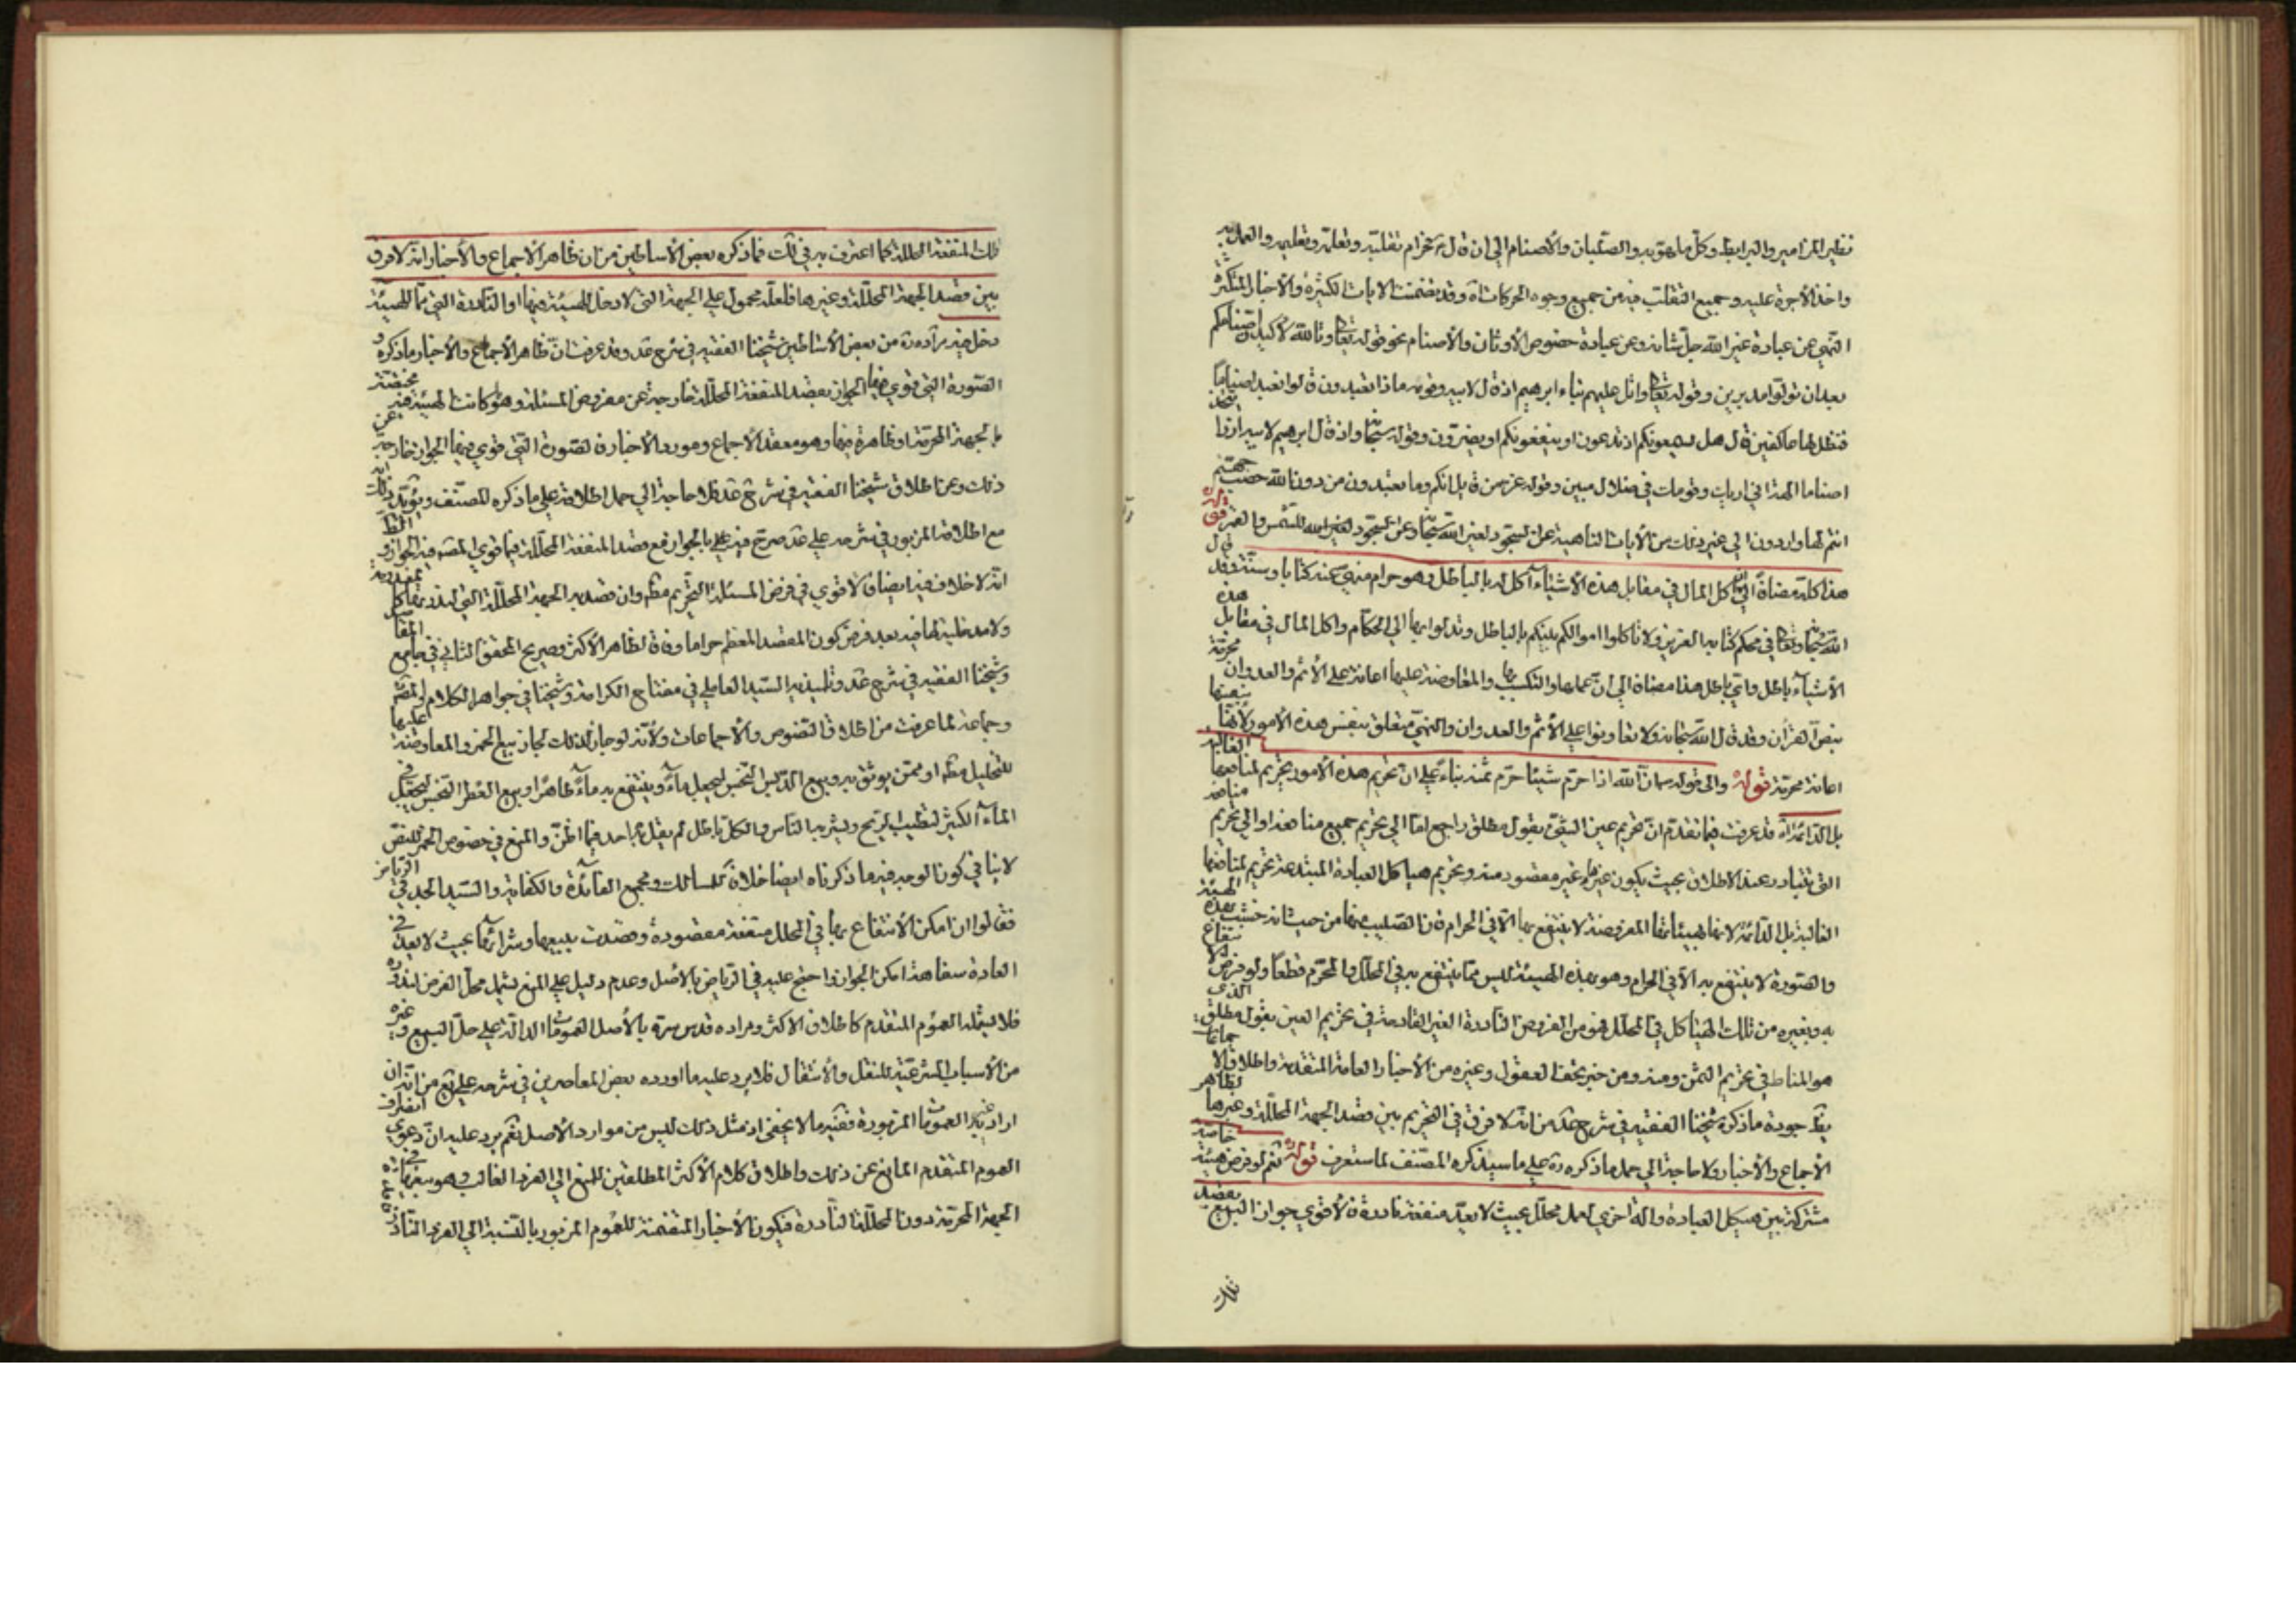 نظير المزامير والبرابط وكل ما يلهو به والصلبان والأصنام الى ان قال فحرام تعليمه وتعلمه والعمل به
واخذ الأجرة عليه وجميع التقلب فيه من جميع وجوه الحركات اه وقد تضمنت الايات الكثيرة والأخبار المتكثرة
النهي عن عبادة غير الله جل شانه وعن عبادة خصوص الأوثان والأصنام نحو قوله تعالى وتالله لأكيدن اصنامكم
بعد ان تولوا مدبرين وقوله تعالى واتل عليهم نباء ابرهيم اذ قال لابيه وقومه ماذا تعبدون قالوا نعبد اصناما
فنظل لها عاكفين قال هل يسمعونكم اذ تدعون او ينفعونكم او يضرون وقوله سبحانه واذ قال ابرهيم لابيه ازر اتتخذ
اصناما الهة اني اريك وقومك في ضلال مبين وقوله عز من قايل انكم وما تعبدون من دون الله حصب جهنم
انتم لها واردون الى غير ذلك من الأيات الناهية عن السجود لغير الله سبحانه وعن السجود لغير الله للشمس والقمر قوله
هذا كله مضافا الى ان اكل المال في مقابل هذه الأشياء اكل له بالباطل وهو حرام منهي عنه كتابا وسنة وقد قال
الله سبحانه وتعالى في محكم كتابه العزيز ولا تأكلوا اموالكم بينكم بالباطل وتدلوا بها الى الحكام واكل المال في مقابل هذه
الأشياء باطل واي باطل هذا مضافا الى ان عملها والتكسب بها والمعاوضة عليها اعانة على الأثم والعدوان محرمة
بنص القران وقد قال الله سبحانه ولا تعاونوا على الأثم والعدوان والنهي متعلق بنفس هذه الأمور لأنها بنفسها
اعانة محرمة قوله والى قوله ان الله اذا حرم شيئا حرم ثمنه بناء على ان تحريم هذه الأمور تحريم لمنافعها الغالبة
بل الدائمة اه قد عرفت فيما تقدم ان تحريم عين الشئ بقول مطلق راجع اما الى تحريم جميع منافعه او الى تحريم منافعه
التي تتبادر عند الاطلاق بحيث يكون غيرها غير مقصود منه وتحريم هياكل العبادة المبتدعة تحريم لمنافعها
الغالبة بل الدائمة لانها بهيئاتها المفروضة لا ينتفع بها الا في الحرام فان الصليب منها من حيث انه خشب بهذه الهيئة
والصورة لا ينتفع به الا في الحرام وهو بهذه الهيئة ليس مما ينتفع به في المحلل والمحرم قطعا ولو فرض الانتفاع
به وبغيره من تلك الهياكل في المحلل فهو من الفروض النادرة الغير القادحة في تحريم العين بقول مطلق الذي
هو المناط في تحريم الثمن ومنه ومن خبر تحف العقول وغيره من الأخبار العامة المتقدمة واطلاق الاجماعات
يظهر جودة ما ذكره شيخنا الفقيه في شرح عد من انه لا فرق في التحريم بين قصد الجهة المحللة وغيرها لظاهر
الأجماع والأخبار ولا حاجة الى حمل ما ذكره ره على ما سيذكره المصنف لما ستعرف قوله نعم لو فرض هيئة خاصة
مشتركة بين هيكل العبادة والة اخرى لعمل محلل بحيث لا يعد منفعة نادرة فالأقوى جواز البيع بقصد
تلك
تلك المنفعة المحللة كما اعترف به في لك فما ذكره بعض الأساطين من ان ظاهر الاجماع والأخبار انه لا فرق
بين قصد الجهة المحللة وغيرها فلعله محمول على الجهة التي لا دخل للهيئة فيها او النادرة التي مما للهيئة
دخل فيه مراده ره من بعض الأساطين شيخنا الفقيه في شرح عد وقد عرفت ان ظاهر الأجماع والأخبار ما ذكره و
الصورة التي قوى فيها الجواز بقصد المنفعة المحللة خارجة عن مفروض المسئلة وهو ما كانت الهيئة فيه مختصة
بالجهة المحرمة او ظاهرة فيها وهو معقد الأجماع ومورد الأخبار فالصورة التي قوى فيها الجواز خارجة عن
ذلك وعن اطلاق شيخنا الفقيه في شرح عد فلا حاجة الى حمل اطلاقه على ما ذكره المصنف ويؤيد ذلك انه
مع اطلاقه المزبور في شرحه على عد صرح فيه على بالجواز مع قصد المنفعة المحللة فيما قوى المصنف فيه الجواز و الظ
انه لا خلاف فيه ايضا فالاقوى في فرض المسئلة التحريم مطلقا وان قصد به الجهة المحللة التي لندورها كل
ولا مدخلية لها فيه بعد فرض كون المقصد المعظم حراما وفاقا لظاهر الأكثر وصريح المحقق الثاني في جامع المقاصد
وشيخنا الفقيه في شرح عد وتلميذيه السيد العاملي في مفتاح الكرامة وشيخنا في جواهر الكلام والمصنف
وجماعة لما عرفت من اطلاق النصوص والأجماعات ولأنه لو جاز لذلك لجاز بيع الخمر والمعاوضة عليها
للتخليل مطلقا او ممن يوثق به وبيع الدبس النجس ليجعل ماء وينتفع به ماء طاهرا وبيع العطر النجس ليجعل في
الماء الكثير لتطييب الريح ويشربه الناس والكل باطل لم يقل به احد فيما اظن والمنع في خصوص الخمر للنص
لا ينافي كون الوجه فيه ما ذكرناه ايضا خلافا للمسالك ومجمع الفائدة والكفاية والسيد الجد في الرياض
فقالوا ان امكن الأنتفاع بها في المحلل منفعة مقصودة وقصدت ببيعها وشرائها بحيث لا يعد في
العادة سفاهة امكن الجواز واحتج عليه في الرياض بالأصل وعدم دليل على المنع يشمل محل الفرض لندوره
فلا يشمله العموم المتقدم كاطلاق الاكثر ومراده قدس سره بالأصل العمومات الدالة على حل البيع وغيره
من الأسباب الشرعية للنقل والأنتقال فلا يرد عليه ما اورده بعض المعاصرين في شرحه على يع من انه ان
اراد غير العمومات المزبورة ففيه ما لا يخفى اذ مثل ذلك ليس من موارد الأصل نعم يرد عليه ان دعوى انصراف
العموم المتقدم المانع عن ذلك واطلاق كلام الأكثر المطلقين للمنع الى الفرد الغالب وهو بيعها في
الجهة المحرمة دون المحللة النادرة فيكون الأخبار المتضمنة للعموم المزبور بالنسبة الى الفرد النادر